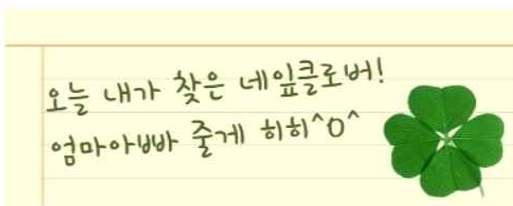 오늘 내가 찾은 네잎클로버!
엄마아빠 줄게 히히^o^